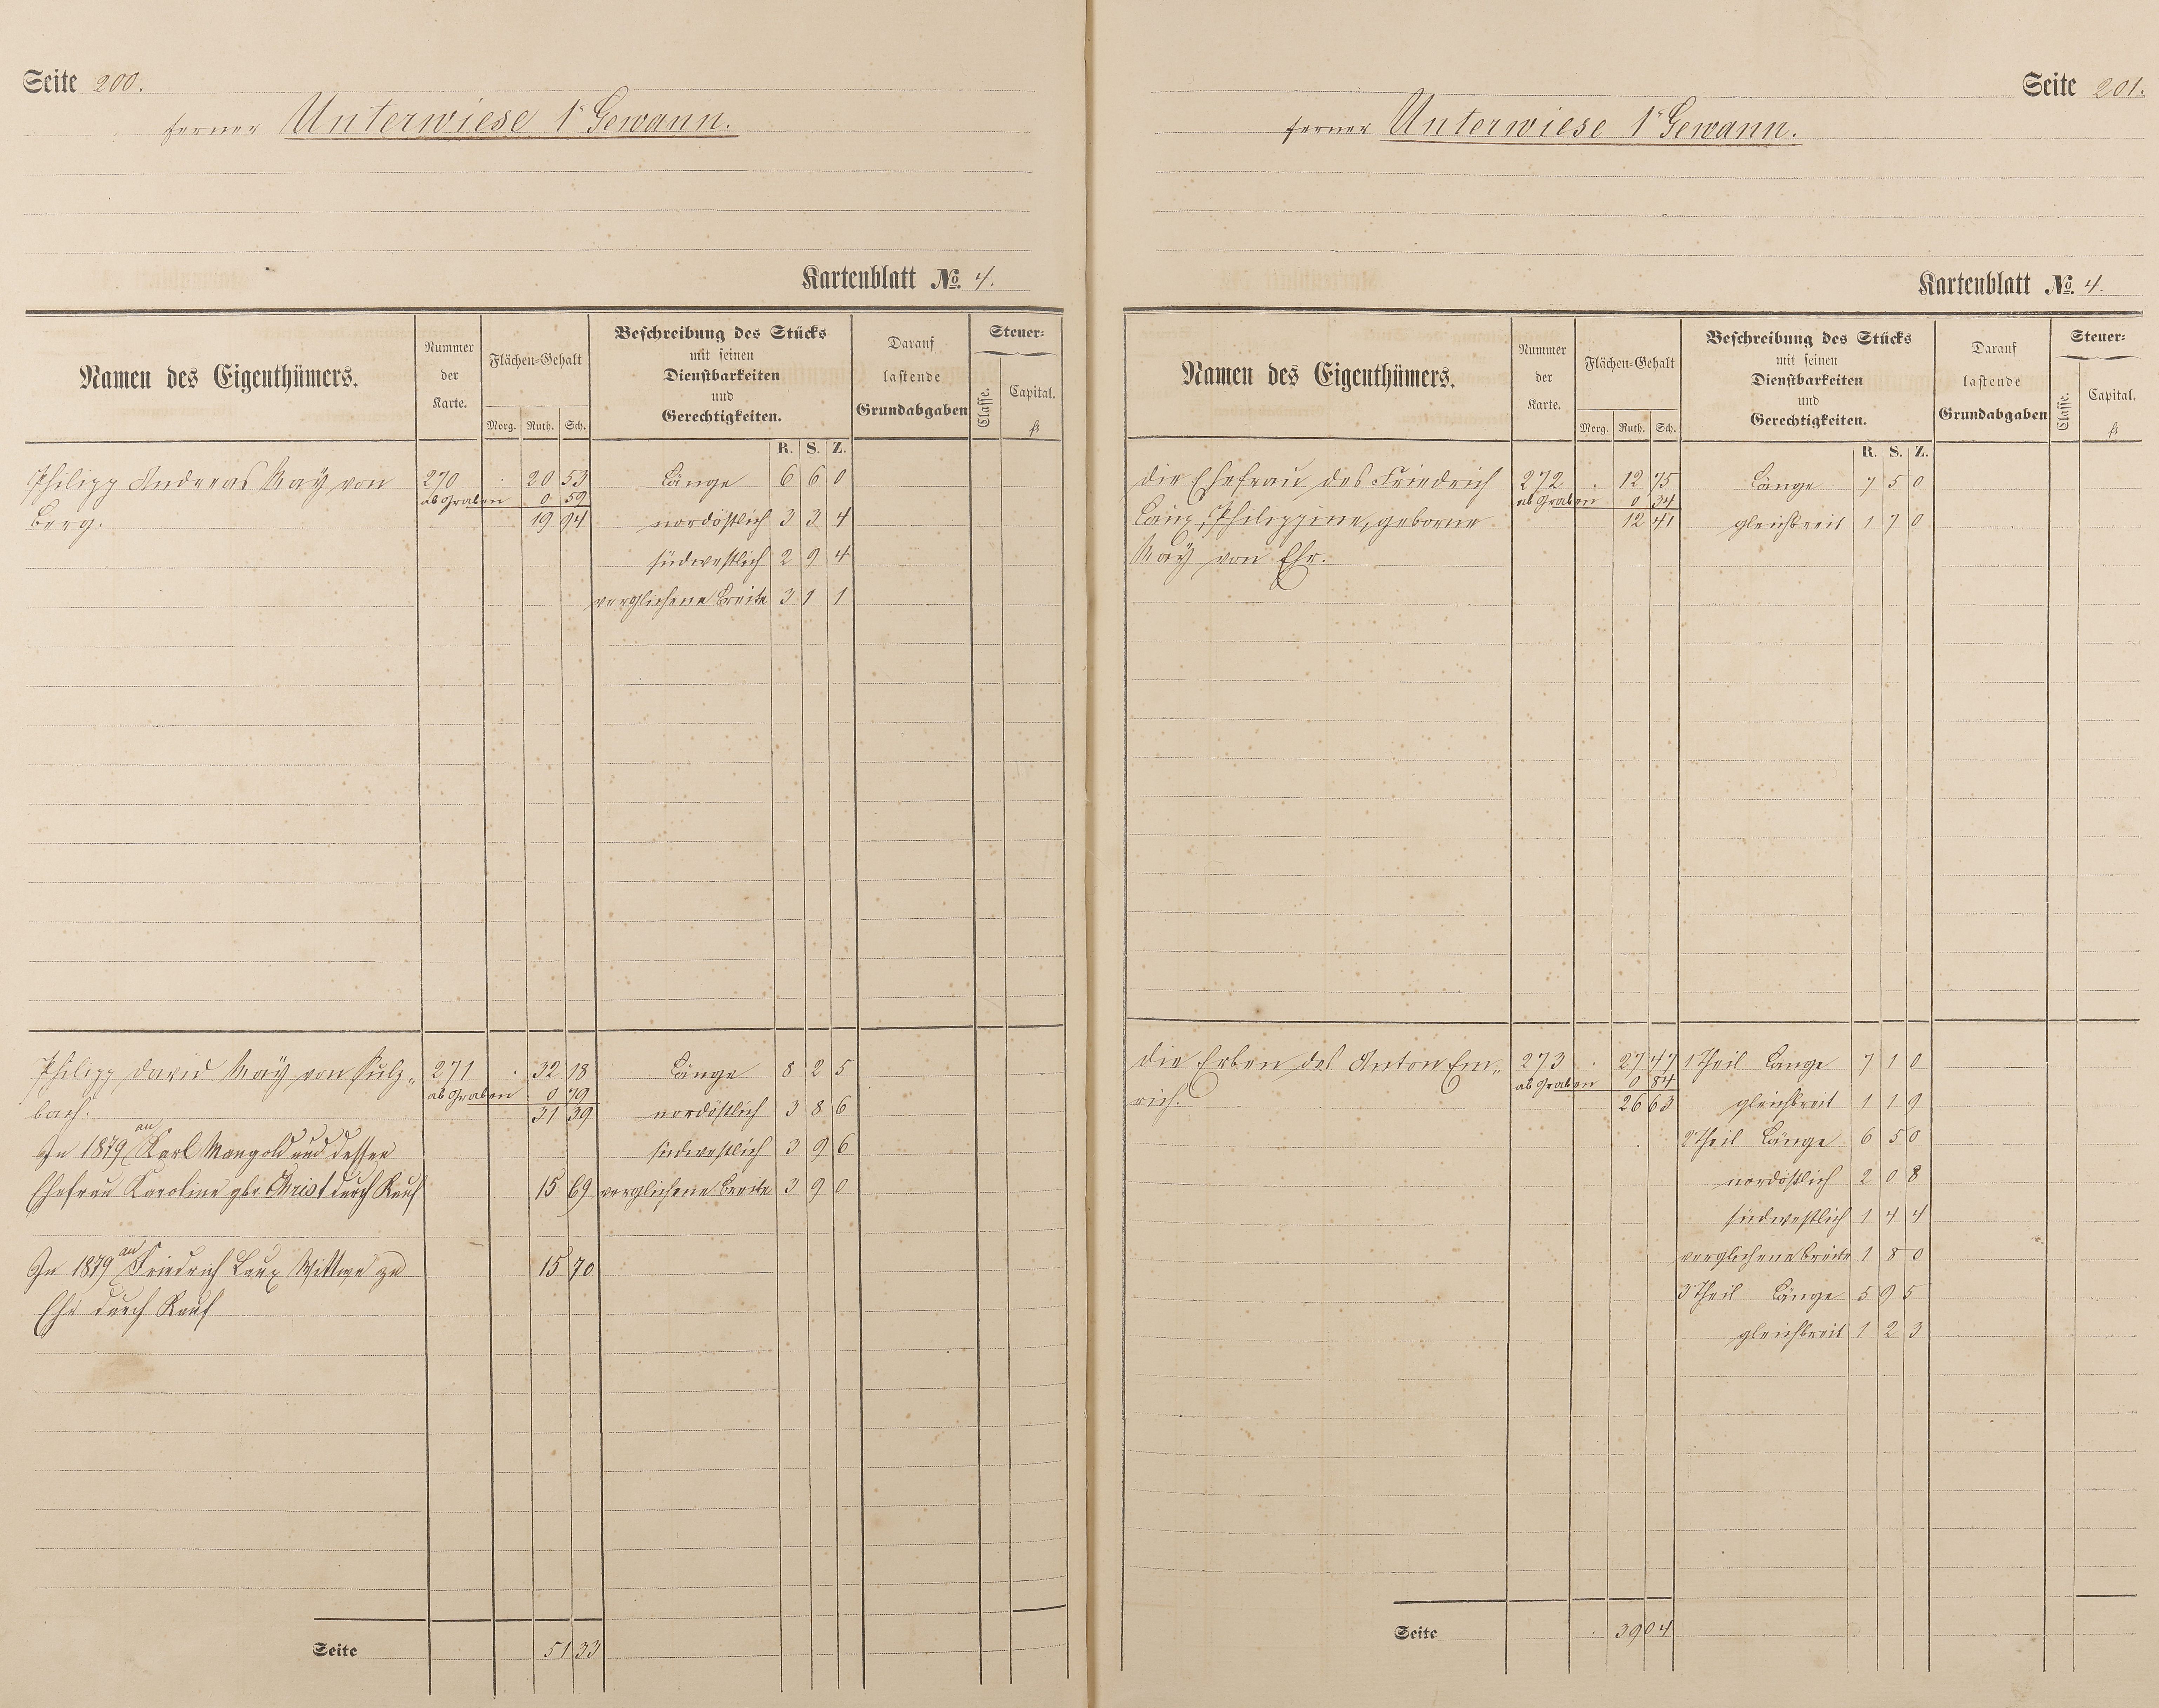 Seite 200.
ferner Unterwiese 1r Gewann.
Kartenblatt No. 4.
Namen des Eigenthümers.
Nummer der Karte.
Flächen-Gehalt
Morg. Ruth. Sch.
Beschreibung des Stücks
mit seinen
Dienstbarkeiten
und
Gerechtigkeiten.
Darauf
lastende
Grundabgaben
Steuer-
Classe. Capital.
fl.
R. S. Z.
Philipp Andreas May von 270 . 20 53 Länge 6 6 0
ab Graben 0 59
Berg. 19 94 nordöstlich 3 3 4
südwestlich 2 9 4
verglichene Breite 3 1 1
Philipp David May von Sulz„ 271 . 32 18 Länge 8 2 5
ab Graben 0 79
bach. 31 39 nordöstlich 3 8 6
In 1879 an Karl Mangold und dessen südwestlich 3 9 6
Ehefrau Karoline gbr Christ durch Kauf 15 69 verglichene Breite 3 9 0
In 1879 an Friedrich Laux Wittwe zu 15 70
Ehr durch Kauf
Seite 51 33
Seite 201.
ferner Unterwiese 1r Gewann.
Kartenblatt No. 4.
Namen des Eigenthümers.
Nummer der Karte.
Flächen-Gehalt
Morg. Ruth. Sch.
Beschreibung des Stücks
mit seinen
Dienstbarkeiten
und
Gerechtigkeiten.
Darauf
lastende
Grundabgaben
Steuer-
Classe. Capital.
fl.
R. S. Z.
die Ehefrau des Friedrich 272 . 12 75 Länge 7 5 0
ab Graben 0 34
Laux, Philippine, geborne 12 41 gleichbreit 1 7 0
May von Ehr.
die Erben des Anton Em„ 273 . 27 47 1 Theil Länge 7 1 0
ab Graben 0 84
rich. 26 63 gleichbreit 1 1 9
2 Theil Länge 6 5 0
nordöstlich 2 0 8
südwestlich 1 4 4
verglichene Breite 1 8 0
3 Theil Länge 5 9 5
gleichbreit 1 2 3
Seite . 39 04